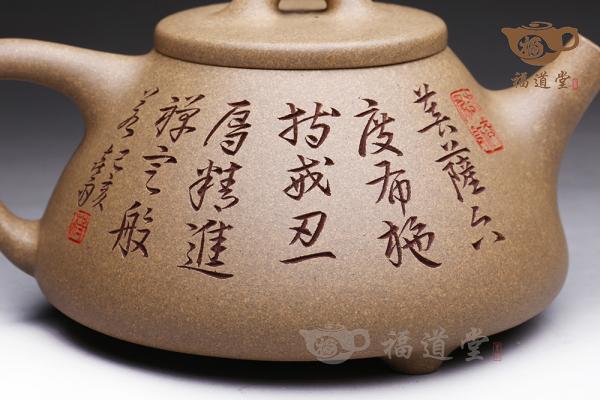 菩薩六
度布施
持戒忍
辱精進
禪定般
若
福道堂
福道堂